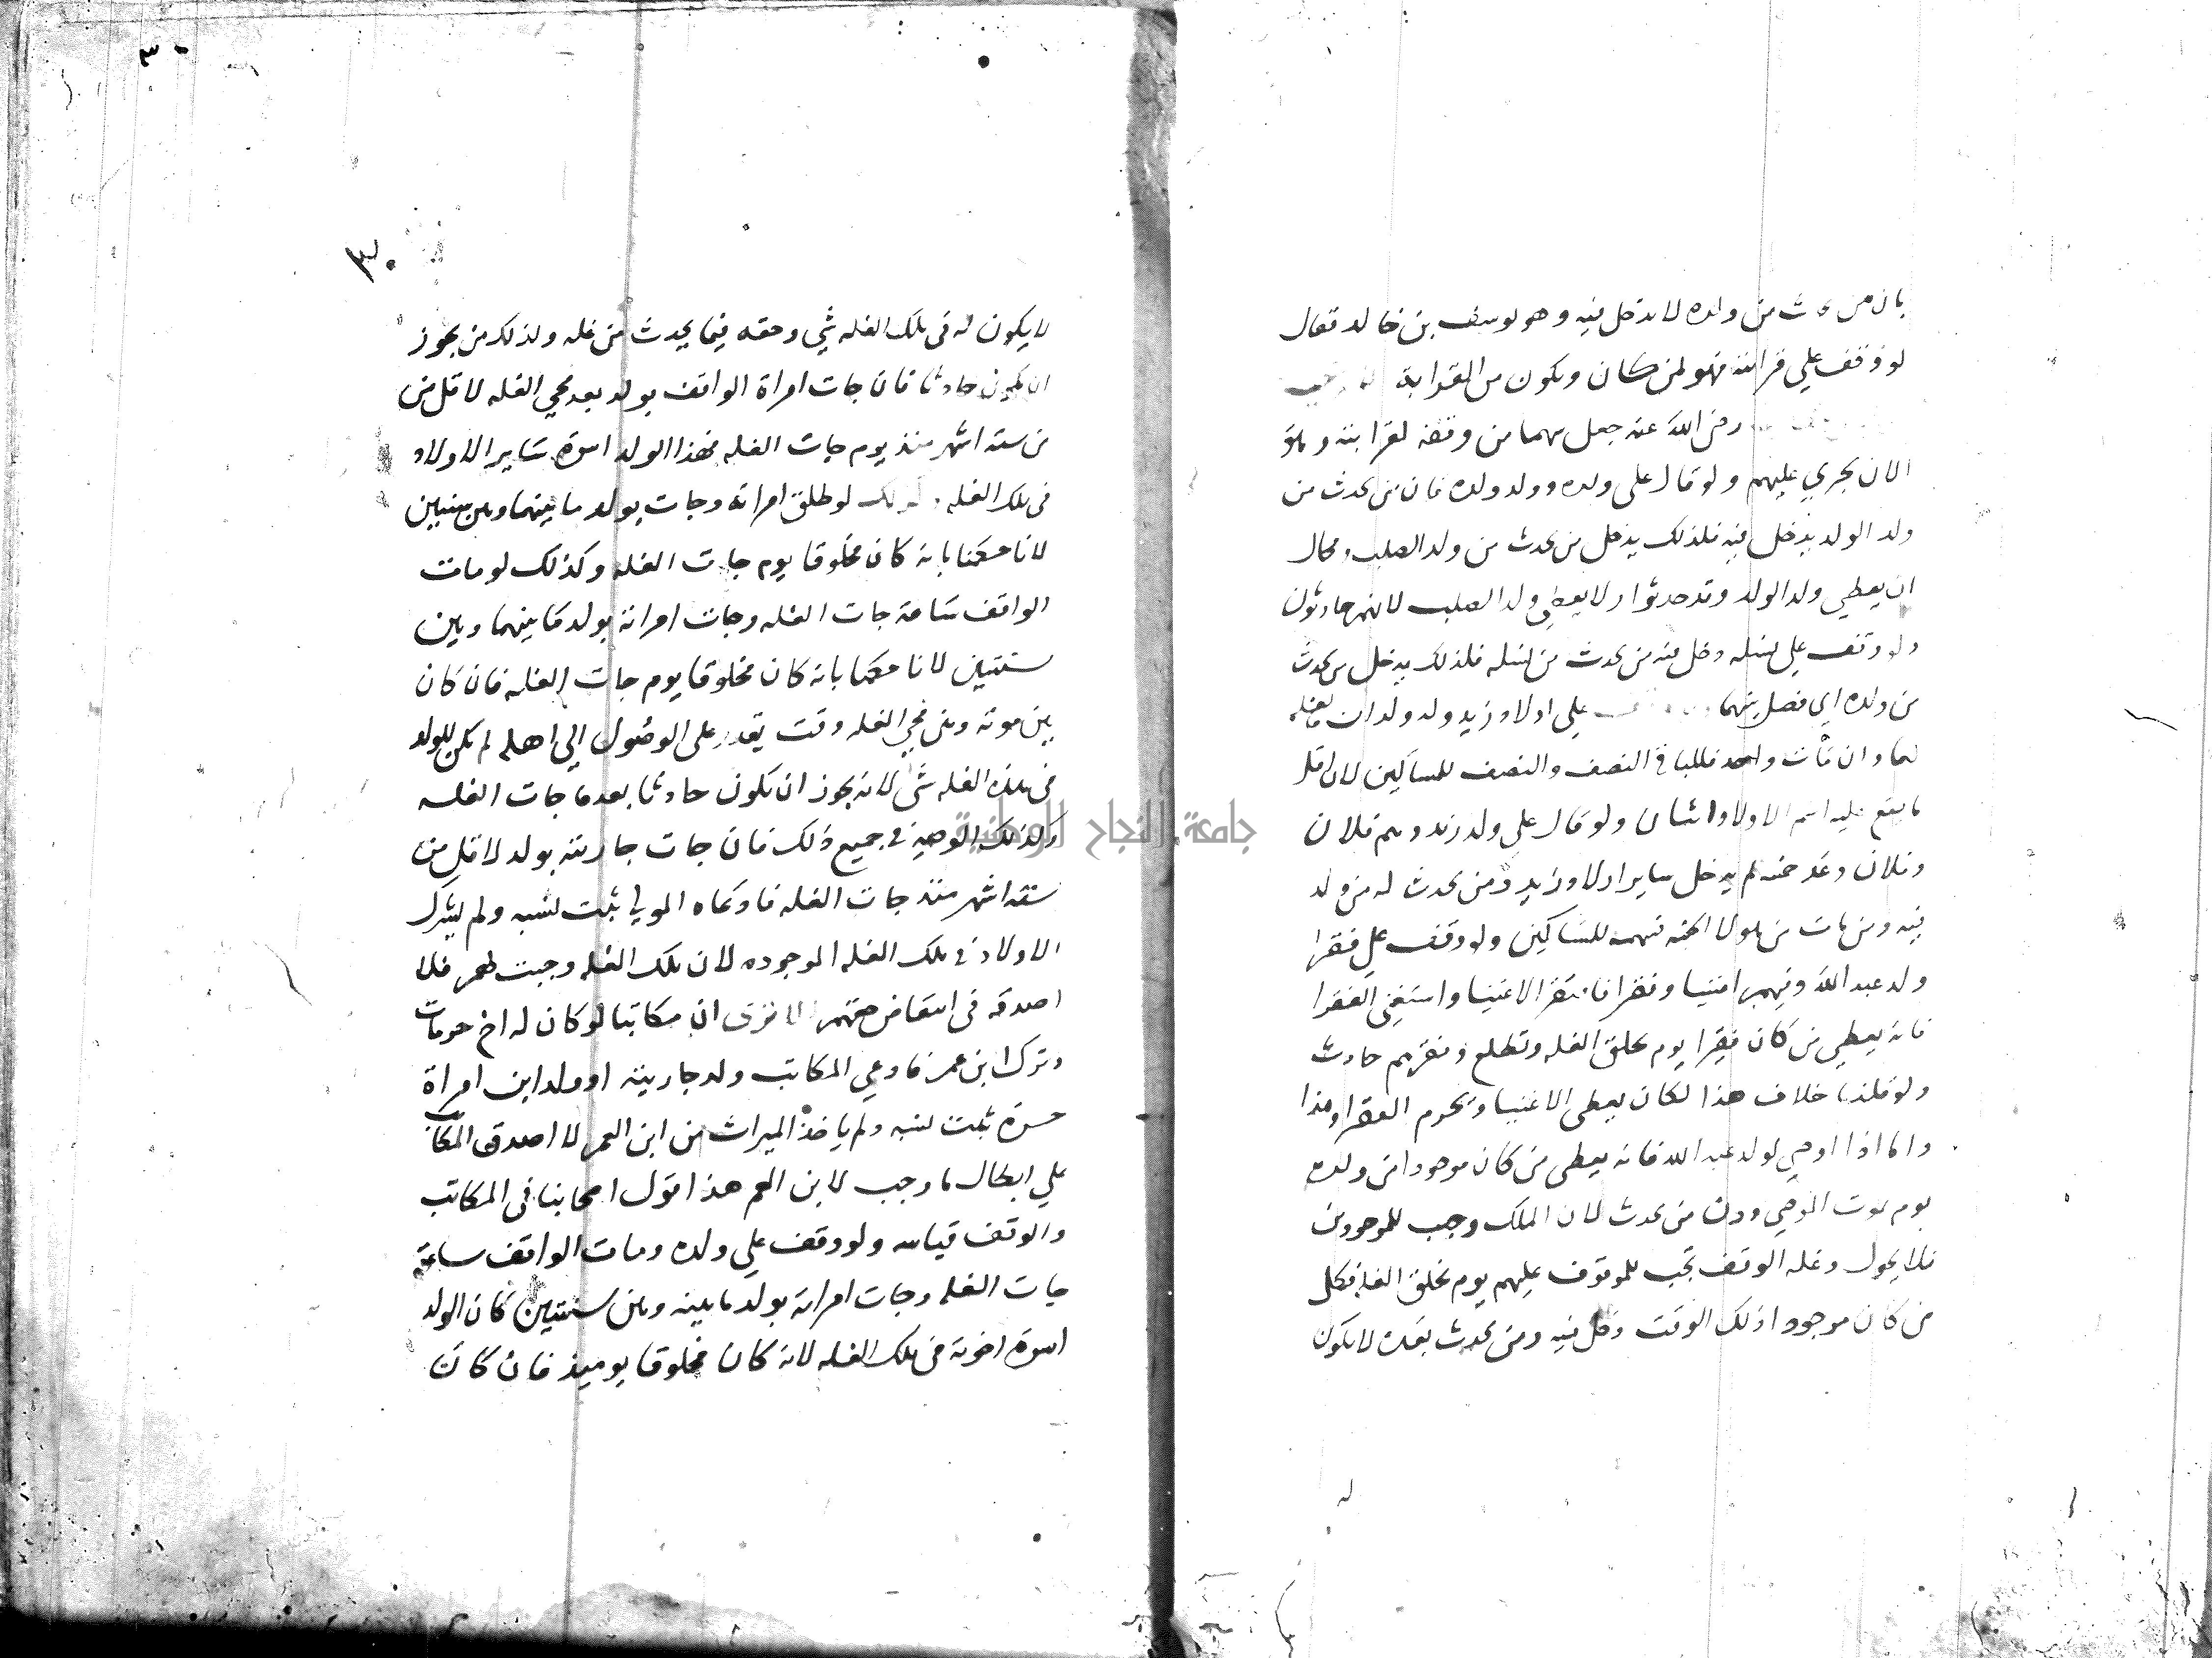 بان من حدث من ولده لا يدخل فيه وهو يوسف بن خالد فقال
لو وقف علي قرابته فهو لمن كان ويكون من القرابة
رضي الله عنه جعل سهما من وقفه لقرابته وهو
الان يجري عليهم ولو قال على ولده وولد ولده فان من يحدث من
ولد الولد يدخل فيه فلذلك يدخل من يحدث من ولد الصلب ومحال
ان يعطي ولد الولد وقد حدثوا ولا يعطي ولد الصلب لانهم حادثون
ولو وقف علي نسله دخل فيه من يحدث من نسله فلذلك يدخل من يحدث
من ولده اي فصل بينهما علي اولاد زيد وله ولدان فالغله
لهما وان مات واحد فللباقي النصف والنصف للمساكين لان اقل
ما يقع عليه اسم الاولاد اثنان ولو قال علي ولد زيد وهم فلان
وفلان وعد خمسه لم يدخل ساير اولاد زيد ومن يحدث له من ولد
فيه ومن مات من هولا الخمسه فسهمه للمساكين ولو وقف علي فقرا
ولد عبد الله وفيهم اغنيا وفقرا فافتقر الاغنيا واستغنى الفقرا
فانه يعطي من كان فقيرا يوم تخلق الغله وتطلع وفقرهم حادث
ولو قلنا خلاف هذا لكان يعطى الاغنيا ويحرم الفقرا وهذا
واما اذا اوصي لولد عبد الله فانه يعطى من كان موجودا من ولده
يوم موت الموصي ودون من يحدث لان الملك وجب للموجودين
فلا يحول وغله الوقف تجب للموقوف عليهم يوم تخلق الغله فكل
من كان موجودا ذلك الوقت دخل فيه ومن يحدث بعده لا يكون
٣٠
٣٠
لا يكون له في تلك الغله شي وحقه فيما يحدث من غله ولذلك من يجوز
ان يكون حادثا فان جات امراة الواقف بولد بعد مجي الغله لاقل من
من سته اشهر منذ يوم جات الغله فهذا الولد اسوة ساير الاولاد
في تلك الغله وكذلك لو طلق امراته وجات بولد ما بينهما وبين سنتين
لانا حكمنا بانه كان مخلوقا يوم جات الغله وكذلك لو مات
الواقف ساعة جات الغله وجات امراته بولد ما بينهما وبين
سنتين لانا حكمنا بانه كان مخلوقا يوم جات الغله فان كان
بين موته وبين مجي الغله وقت يقدر على الوصول الي اهله لم يكن للولد
في هذه الغله شي لانه يجوز ان يكون حادثا بعد ما جات الغله
وكذلك الوصيه في جميع ذلك فان جات جاريته بولد لاقل من
سته اشهر منذ جات الغله فادعاه المولي ثبت نسبه ولم يشرك
الاولاد في تلك الغله الموجوده لان تلك الغله وجبت لهم فلا
اصدقه في انتقاض حقهم الا تري ان مكاتبا لو كان له اخ حر مات
وترك ابن عم فادعي المكاتب ولد جاريته او ولد ابن امراة
حرة ثبت نسبه ولم ياخذ الميراث من ابن العم لا اصدق المكاتب
علي ابطال ما وجب لابن العم هذا قول اصحابنا في المكاتب
والوقف قياسه ولو وقف علي ولده ومات الواقف ساعة
جات الغله وجات امراته بولد ما بينه وبين سنتين كان الولد
اسوة اخوته في تلك الغله لانه كان مخلوقا يوميذ فان كان
جامعة النجاح الوطنية